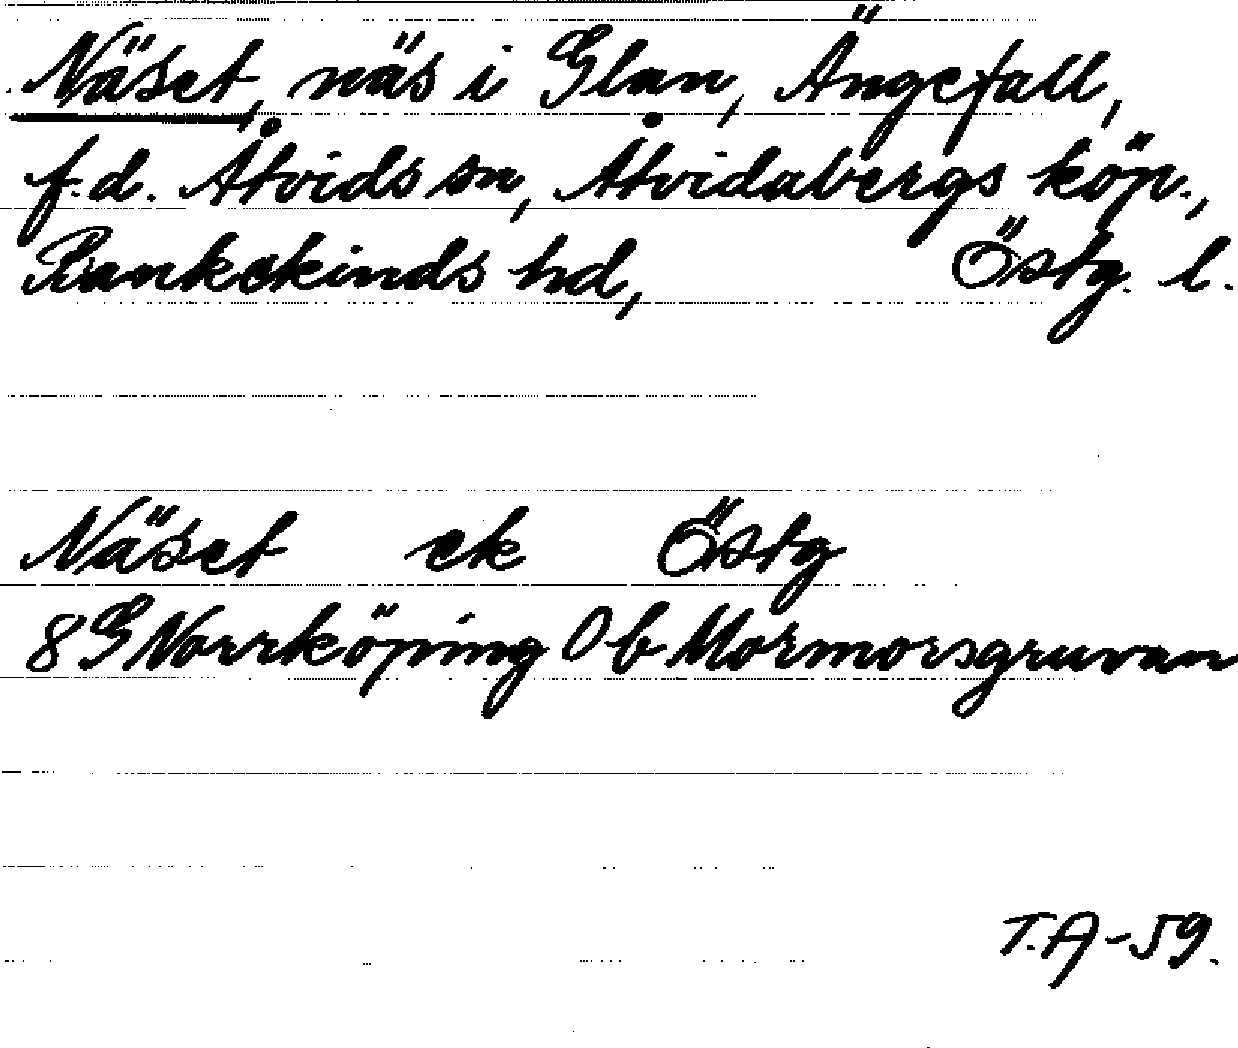 Näset, näs i Glan, Ängefall,
f.d. Åtvids sn, Åtvidabergs köp.,
Bankekinds hd, Östg. l.
Näset ek Östg
8G Norrköping 0b Mormorsgruvan
T.A-59.